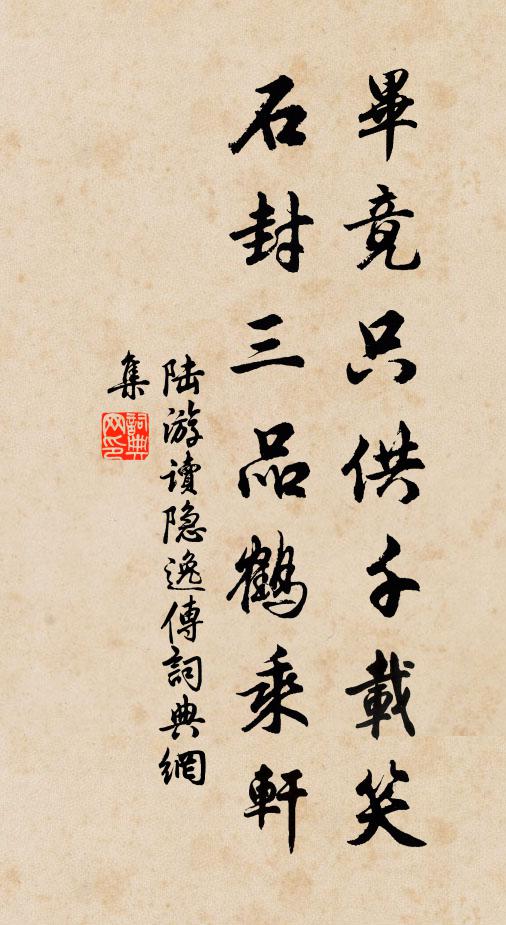 畢竟只供千載笑
石封三品鶴乘軒
陆游讀隐逸傳詞典網
集
詞典
网印